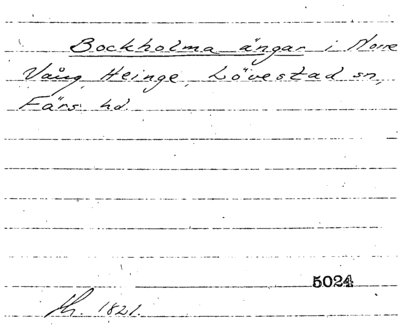 Bockholma ängar i Norre
Vång, Heinge, Lövestad sn,
Färs hd
5024
1821.